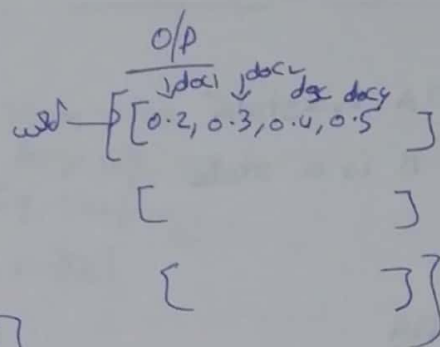 O/P
↓doc1 ↓doc2 doc doc4
word → [[0.2, 0.3, 0.4, 0.5 ]
[ ]
[ ]]
]